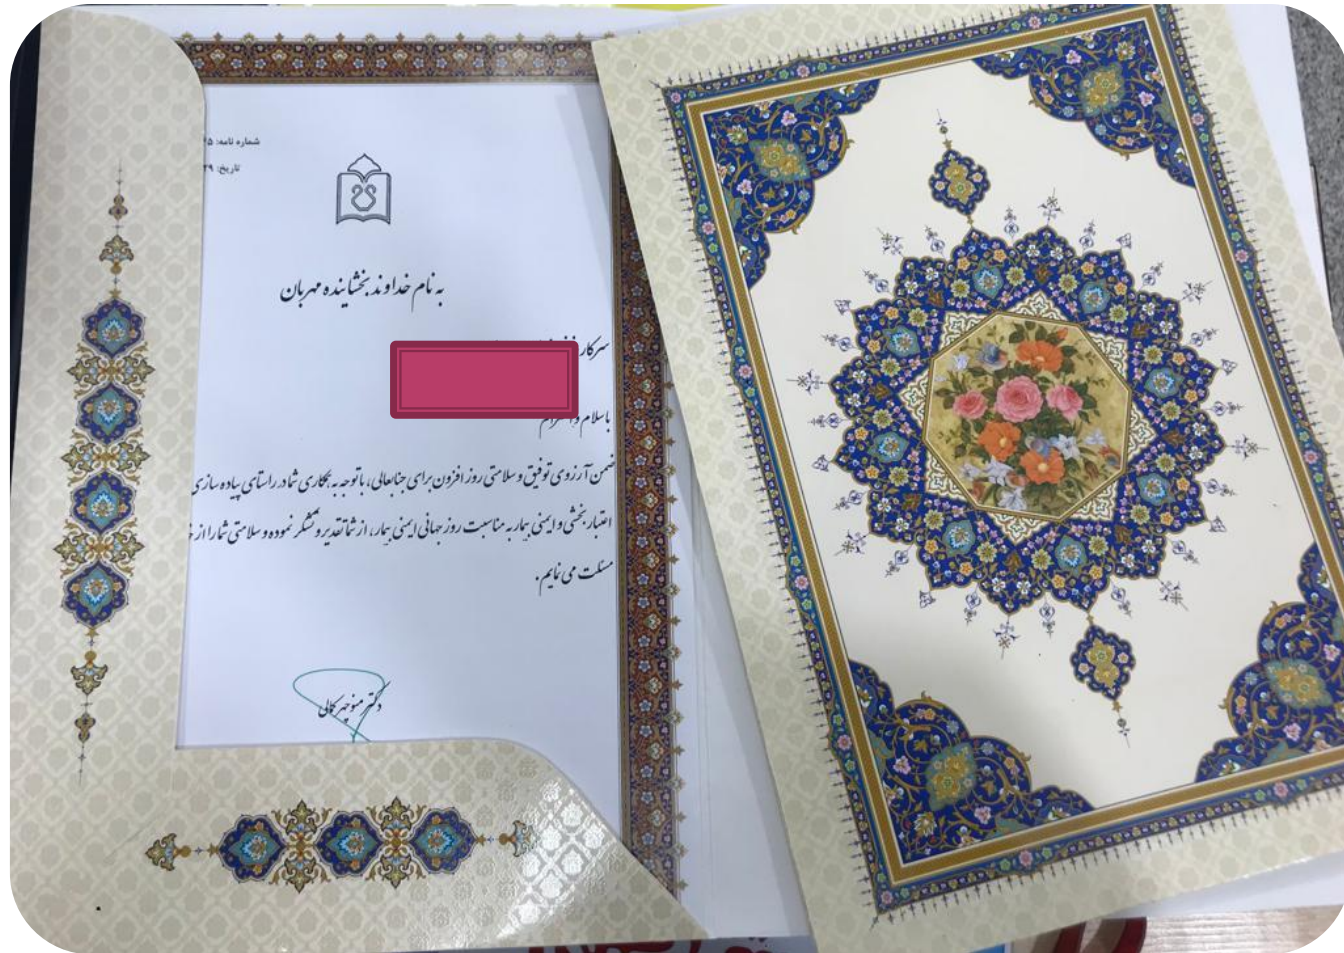 شماره نامه: ۵
تاریخ: ۲۹
به نام خداوند بخشاینده مهربان
سرکار
باسلام و احترام
ضمن آرزوی توفیق و سلامتی روز افزون برای جنابعالی، باتوجه به همکاری شما در راستای پیاده سازی
اعتبار بخشی و ایمنی بیمار به مناسبت روز جهانی ایمنی بیمار، از شما تقدیر و تشکر نموده و سلامتی شما را از
مسئلت می نمایم.
دکتر منوچهر کمالی